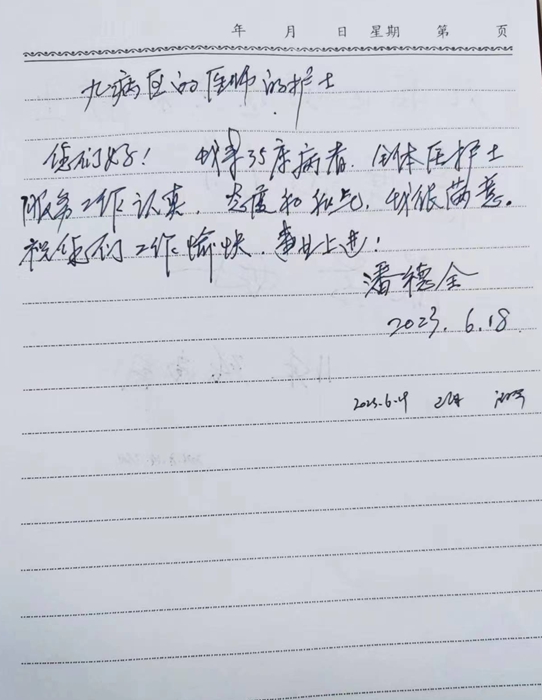 年 月 日 星期 第 页
九病区的医师的护士
您们好！ 我是35床病者，全体医护士
服务工作认真，态度和和气，我很满意。
祝你们工作愉快，事业上进！
潘德全
2023.6.18